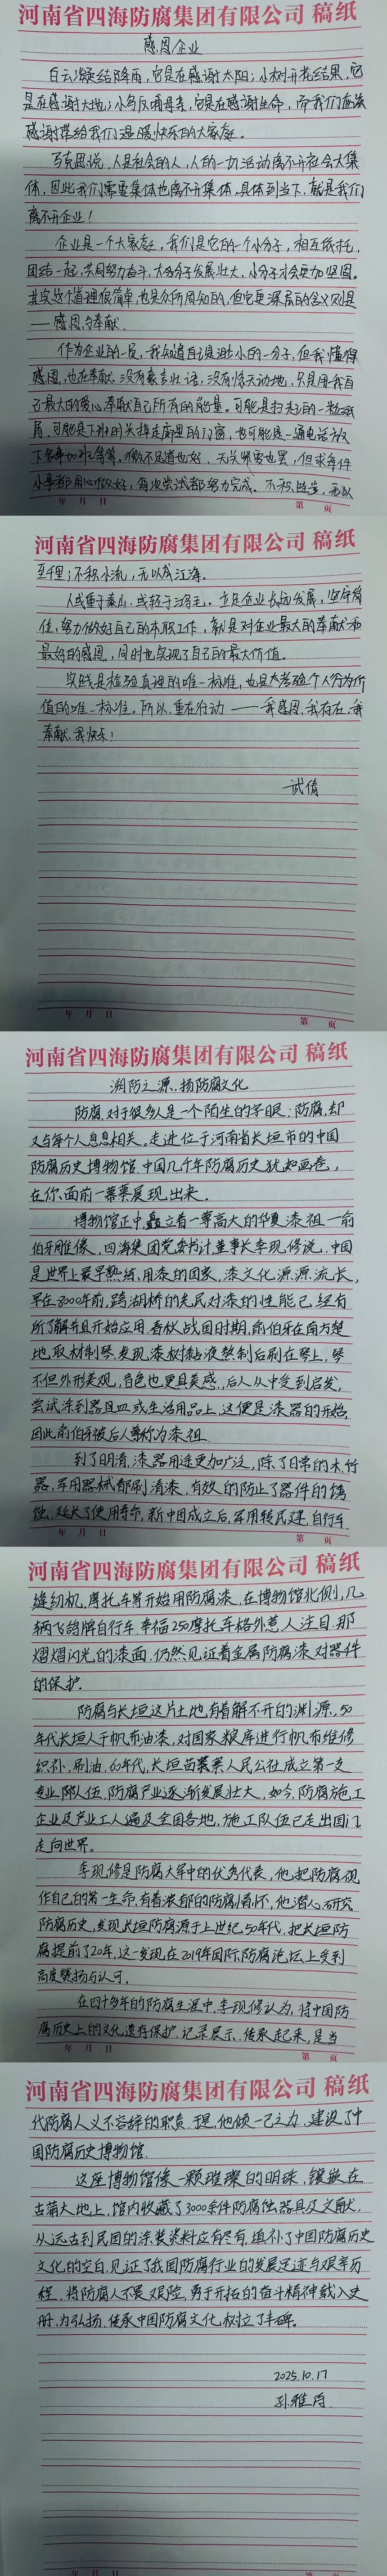 河南省四海防腐集团有限公司 稿纸
感恩企业
白云凝结降雨，它是在感谢太阳；小树开花结果，它
是在感谢大地；小鸟反哺母亲，它是在感谢生命，而我们应该
感谢带给我们温暖快乐的大家庭。
马克思说，人是社会的人，人的一切活动离不开社会大集
体，因此我们需要集体也离不开集体，具体到当下，就是我们
离不开企业！
企业是一个大家庭，我们是它的一个小分子，相互依托，
团结一起，共同努力奋斗，大分子发展壮大，小分子才会更加坚固。
其实这个道理很简单，也是众所周知的，但它更深层的含义则是
——感恩，奉献．
作为企业的一员，我知道自己是渺小的一分子，但我懂得
感恩，也在奉献。没有豪言壮语，没有惊天动地，只是用我自
己最大的爱心奉献自己所有的能量。可能是扫起的一粒纸
屑，可能是下班时关掉走廊里的门窗，也可能是一通电话放
下家事加班等等，微不足道也好，无关紧要也罢，但求每件
小事都用心做好，每次尝试都努力完成。不积跬步，无以
年 月 日 第 页
河南省四海防腐集团有限公司 稿纸
至千里；不积小流，无以成江海。
人或重于泰山，或轻于鸿毛。立足企业长远发展，坚守岗
位，努力做好自己的本职工作，就是对企业最大的奉献和
最好的感恩，同时也实现了自己的最大价值。
实践是检验真理的唯一标准，也是考验个人行为价
值的唯一标准。所以，重在行动——我感恩，我存在，我
奉献，我快乐！
武倩
年 月 日 第 页
河南省四海防腐集团有限公司 稿纸
溯防之源，扬防腐文化
防腐，对于很多人是一个陌生的字眼；防腐，却
又与每个人息息相关。走进位于河南省长垣市的中国
防腐历史博物馆，中国几千年防腐历史犹如画卷，
在你面前一幕幕展现出来．
博物馆正中，矗立着一尊高大的华夏漆祖—俞
伯牙雕像，四海集团党委书计，董事长李现修说，中国
是世界上最早熟练，用漆的国家，漆文化源源流长，
早在8000年前，跨湖桥的先民对漆的性能已经有
所了解并且开始应用．春秋战国时期，俞伯牙在南方楚
地，取材制琴，发现漆树黏液熬制后刷在琴上，琴
不但外形美观，音色也更具美感，后人从中受到启发，
尝试涂到器皿或生活用品上，这便是漆器的开始，
因此俞伯牙被后人尊称为漆祖．
到了明清，漆器用途更加广泛，除了日常的木竹
器，军用器械都刷清漆，有效的防止了器件的锈
蚀，延长了使用寿命，新中国成立后，军用转民建，自行车
年 月 日 第 页
河南省四海防腐集团有限公司 稿纸
缝纫机，摩托车等开始用防腐漆，在博物馆北侧，几
辆飞鸽牌自行车，幸福250摩托车格外惹人注目，那
熠熠闪光的漆面，仍然见证着金属防腐漆对器件
的保护．
防腐与长垣这片土地，有着解不开的渊源，50
年代长垣人干帆布油漆，对国家粮库进行帆布维修
织补，刷油，60年代，长垣苗寨人民公社成立第一支
专业队伍，防腐产业逐渐发展壮大，如今，防腐施工
企业及产业工人遍及全国各地，施工队伍已走出国门，
走向世界。
李现修是防腐大军中的优秀代表，他把防腐视
作自己的第一生命，有着浓郁的防腐情怀，他潜心研究
防腐历史，发现长垣防腐源于上世纪50年代，把长垣防
腐提前了20年，这一发现在2019年国际防腐论坛上受到
高度赞扬与认可．
在四十多年的防腐生涯中，李现修认为，将中国防
腐历史上的文化遗存保护，记录展示，传承起来，是当
年 月 日 第 页
河南省四海防腐集团有限公司 稿纸
代防腐人义不容辞的职责．于是，他倾一己之力，建设了中
国防腐历史博物馆．
这座博物馆像一颗璀璨的明珠，镶嵌在
古蒲大地上，馆内收藏了3000余件防腐蚀器具及文献，
从远古到民国的涂装资料应有尽有，填补了中国防腐历史
文化的空白，见证了我国防腐行业的发展足迹与艰辛历
程，将防腐人不畏艰险，勇于开拓的奋斗精神载入史
册，为弘扬，传承中国防腐文化，树立了丰碑。
2025.10.17
孙雅
年 月 日 第 页